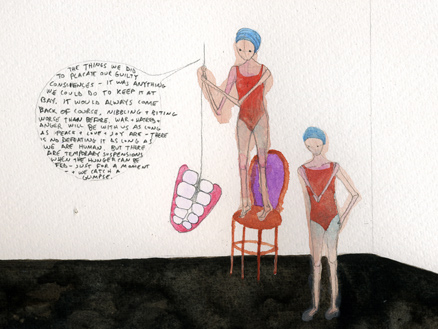 THE THINGS WE DID
TO PLACATE OUR GUILTY
CONSCIENCES - IT WAS ANYTHING
WE COULD DO TO KEEP IT AT
BAY. IT WOULD ALWAYS COME
BACK OF COURSE, NIBBLING + BITING
WORSE THAN BEFORE. WAR + HATRED +
ANGER WILL BE WITH US AS LONG
AS PEACE + LOVE + JOY ARE - THERE
IS NO DEFEATING IT AS LONG AS
WE ARE HUMAN. BUT THERE
ARE TEMPORARY SUSPENSIONS
WHEN THE HUNGER CAN BE
FED - JUST FOR A MOMENT
- + WE CATCH A
GLIMPSE.